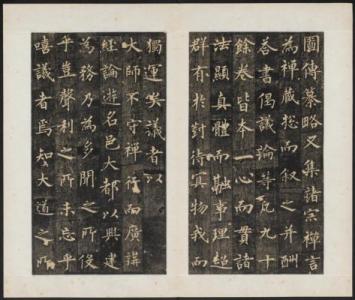 圖傳纂略又集諸宗禪言
為禪藏総而叙之并酬
荅書偈議論等凡九十
餘卷皆本一心而貫諸
法顯真體而融事理超
群有於對待冥物我而
獨運矣議者以
大師不守禪行而廣講
經論遊名邑大都以興建
為務乃為多聞之所役
乎豈聲利之所未忘乎
嘻議者焉知大道之所